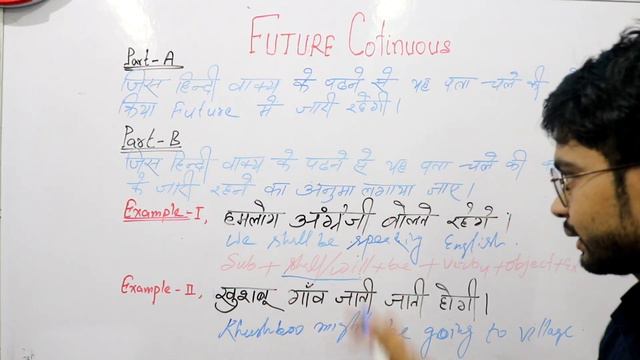 FUTURE COTINUOUS
Part-A
जिस हिन्दी वाक्य के पढने से यह पता चले की
क्रिया Future मे जारी रहेगी।
Part-B
जिस हिन्दी वाक्य के पढने से यह पता चले की
के जारी रहने का अनुमा लगाया जाए।
Example-I, हमलोग अंग्रेजी बोलते रहेगे।
We shall be speaking English.
Sub + shall/will + be + v +object+
Example-II, खुशबू गाँव जाती जाती होगी।
Khushboo be going to village.